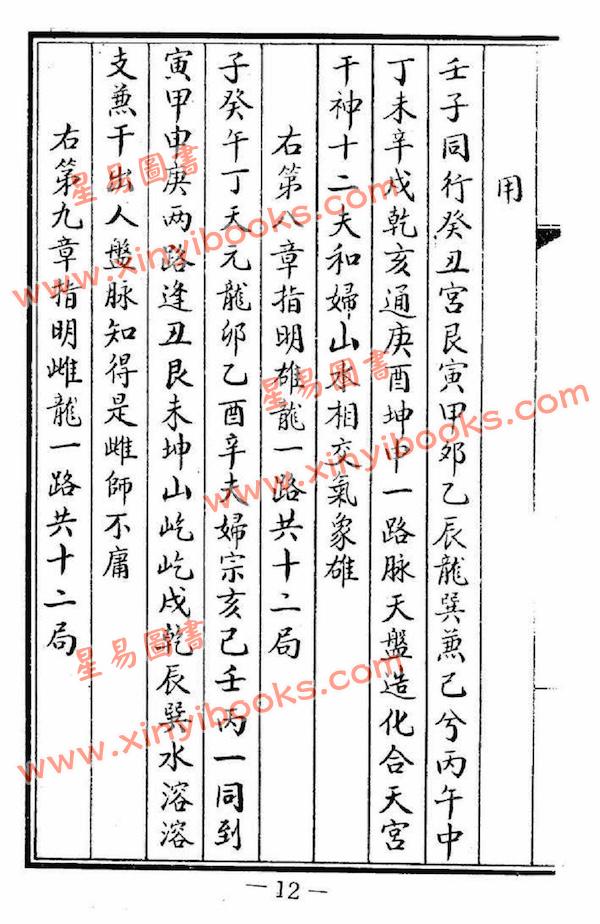 用
壬子同行癸丑宮艮寅甲卯乙辰龍巽兼巳兮丙午中
丁未辛戌乾亥通庚酉坤申一路脉天盤造化合天宮
干神十二夫和婦山水相交氣象雄
右第八章指明雄龍一路共十二局
子癸午丁天元龍卯乙酉辛夫婦宗亥巳壬丙一同到
寅甲申庚两路逢丑艮未坤山屹屹戌乾辰巽水溶溶
支兼干出人盤脉知得是雌師不庸
右第九章指明雌龍一路共十二局
—12—
星易圖書
www.xinyibooks.com
星易圖書
www.xinyibooks.com
星易圖書
www.xinyibooks.com
星易圖書
www.xinyibooks.com